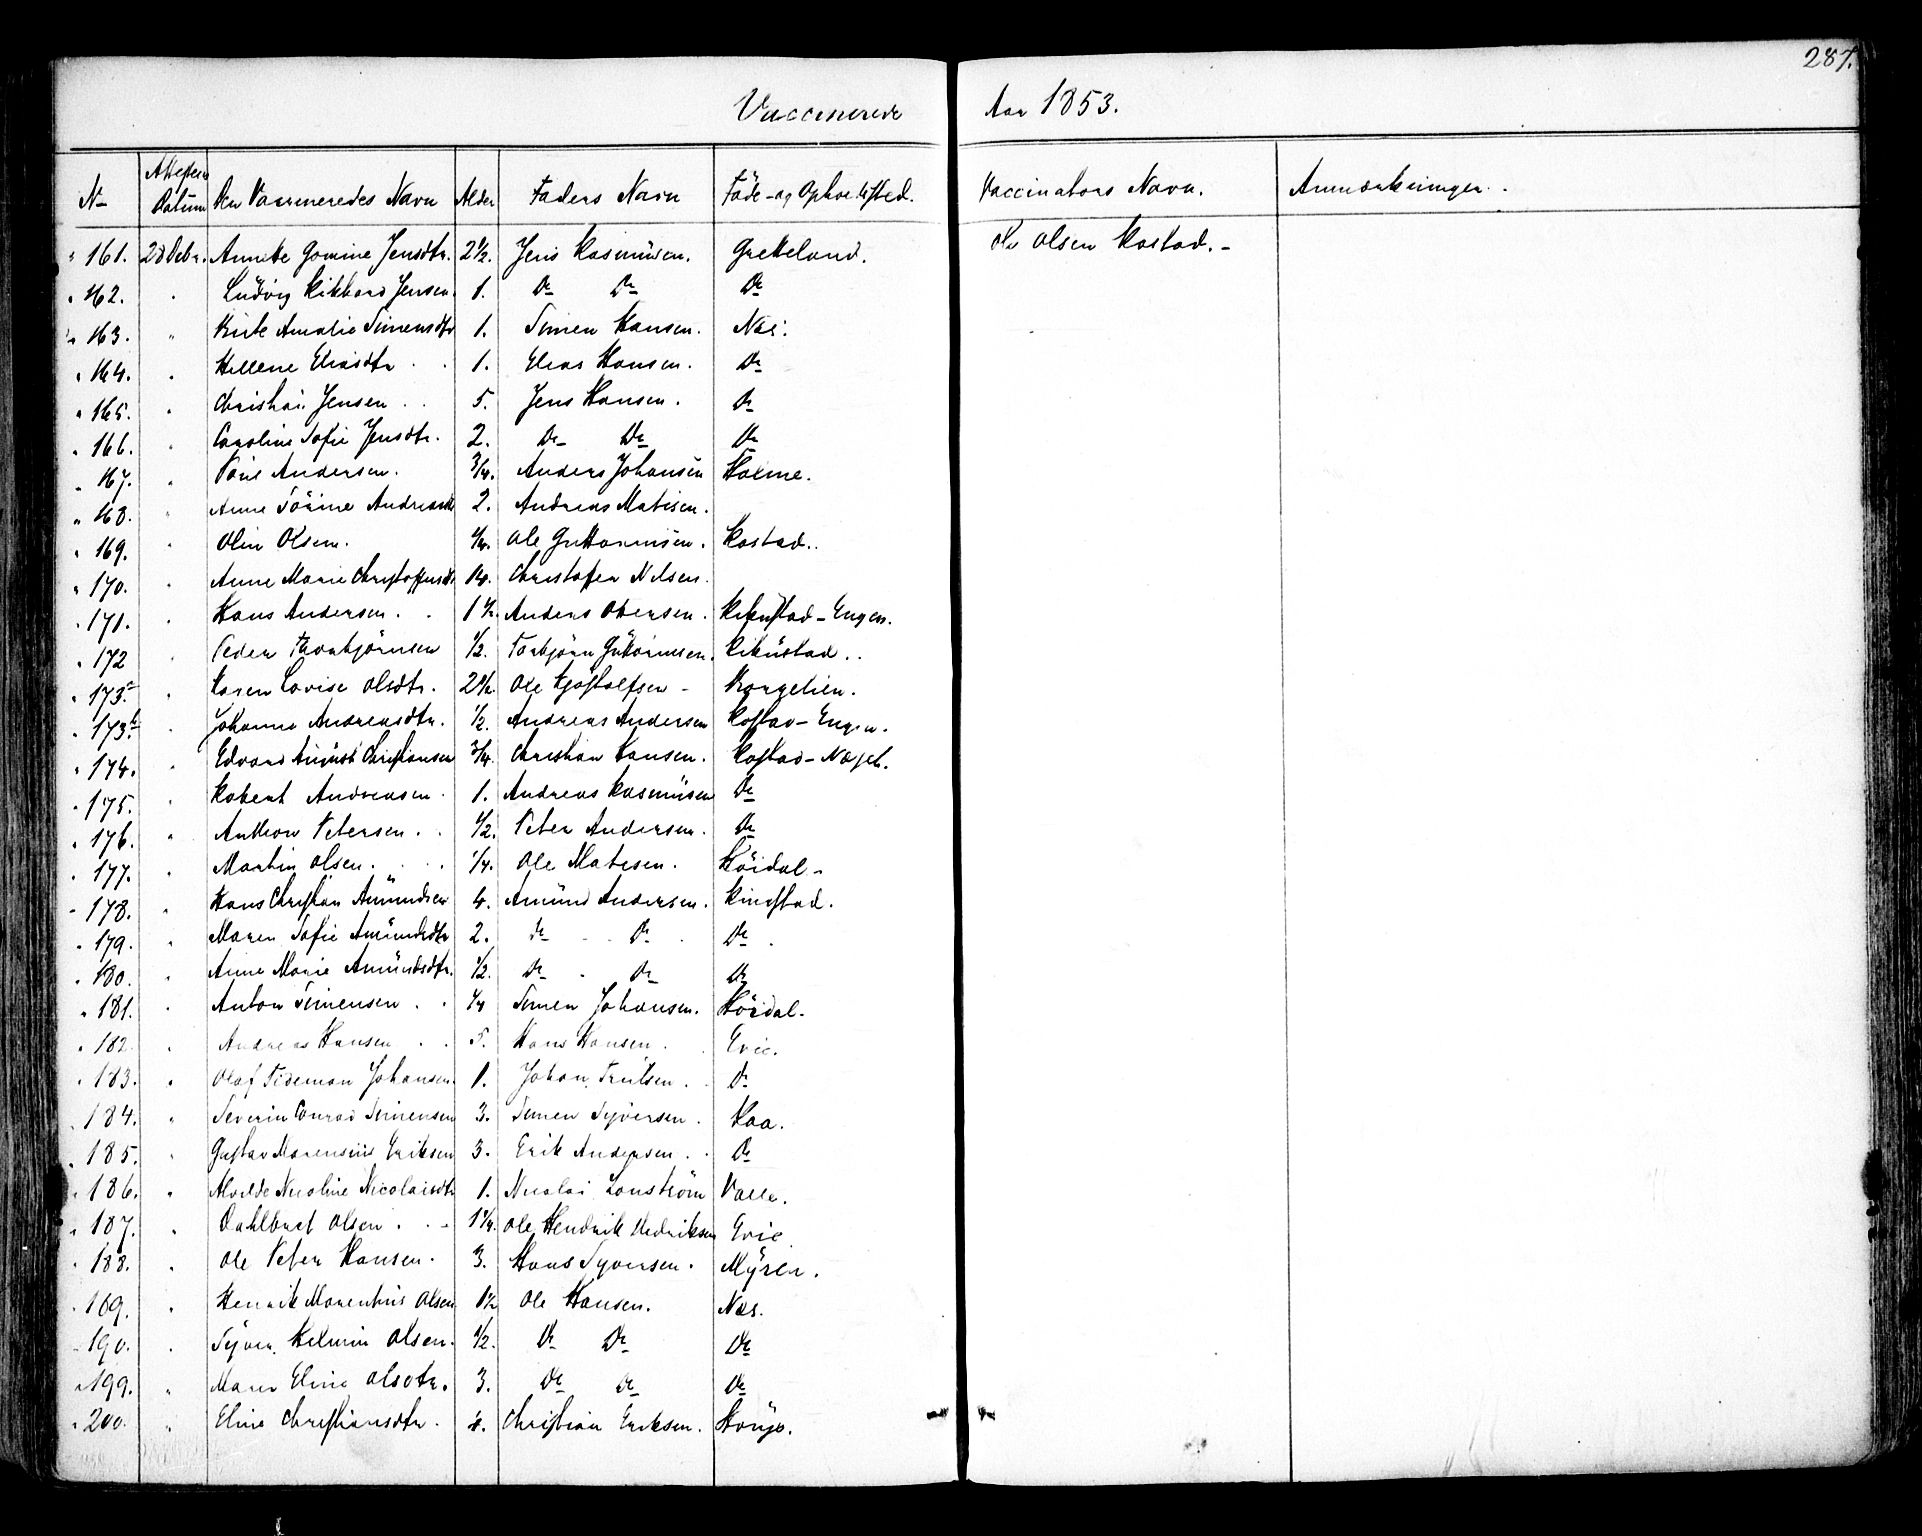 287.
Vaccinerede Aar 1853.
No Attestens Datum Den Vaccineredes Navn Alder Faders Navn Føde- og Opholdssted. Vaccinatørs Navn. Anmærkninger.
" 161. 28 Debr. Annete Jensdtr. 2½. Jens Rasmüsen. Grelleland. Ole Olsen Rostad.-
" 162. " Ludvig Rikhard Jensen. 1. Do Do Do
" 163. " Birte Amalie Simensdtr 1. Simen Hansen. Næs.
" 164. " Hellene Eliasdtr . . 1. Elias Hansen. Do
" 165. " Christian Jensen . . 5. Jens Hansen. Do
" 166. " Caroline Sofie Jensdtr. 2. Do Do Do
" 167. " Andersen. 3/4. Anders Johansen Holme.
" 168. " Anne Andreasdtr 2. Andreas Matisen.
" 169. " Olin Olsen. ¼. Ole Guttormsen. Rostad..
" 170. " Anne Marie Christoffersdtr 14. Christofer Nilsen.
" 171. " Hans Andersen. . 1½. Anders Olersen. Rikustad-Engen.
" 172 " Peder Thorbjörnsen ½. Torbjörn Gütormsen. Rikustad..
" 173a " Karen Lovise Olsdtr. 2½. Ole Kjøstolfsen - Borgelien.
" 173b. " Johanne Andreasdtr. ½. Andreas Andersen Rostad-Engen.
" 174. " Edvard August Christiansen 3/4. Christian Hansen. Rostad-
" 175. " Robert Andreasen. 1. Andreas Rasmüsen Do
" 176. " Anthon Petersen. . ½. Peter Andersen. Do
" 177. " Martin Olsen. . . ¼. Ole Matisen. Höidal-
" 178. " Hans Christian Amündsen 4. Amünd Andersen. Ringstad.
" 179. " Maren Sofie Amündsdtr 2. Do . . Do . Do .
" 180. " Anne Marie Amündsdtr. ½. Do . Do Do
" 181. " Anton Simensen . . ¼ Simen Johansen. Höidal.
" 182. " Andreas Hansen . . 5. Hans Hansen . Evie.
" 183. " Olaf Tideman Johansen. 1. Johan Trulsen. . Do
" 184. " Severin Conrad Simensen 3. Simen Syversen . Haa.
" 185. " Gustav Marensius Eriksen 3. Erik Andersen. . Do
" 186. " Alvilde Nicoline Nicolaisdtr 1. Nicolai Lonström Valle.
" 187. " Dahlbert Olsen . . - 1¼. Ole Hendrik Hedriksen Evie.
" 188. " Ole Peter Hansen. 3. Hans Syversen. Mÿrer.
" 169. " Henrik Marentius Olsen 1½ Ole Hansen. Næs.
" 190. " Syver Helmin Olsen. ½. Do Do Do
" 199. " Maren Eline Olsdtr. 3. Do Do Do
" 200. " Eline Christiansdtr. 4. Christian Eriksen.